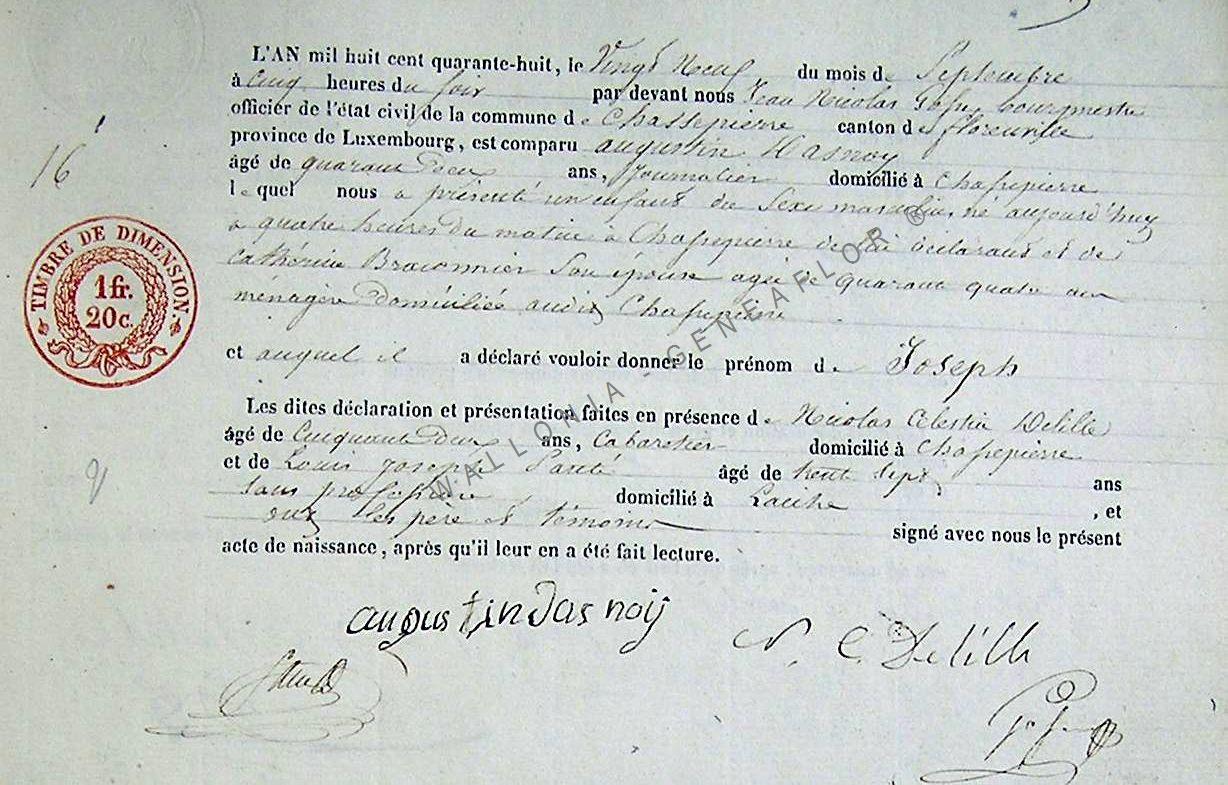 16
L'AN mil huit cent quarante-huit, le Vingt Neuf du mois de Septembre
à Cinq heures du soir par devant nous Jean Nicolas bourgmestre
officier de l'état civil de la commune de Chassepierre canton de florenville
province de Luxembourg, est comparu augustin Hasnoy
âgé de quarant deux ans, Journalier domicilié à Chassepierre
lequel nous a présenté un enfant du Sexe masculin, né aujourd'huy
a quatre heures du matin a Chassepierre de lui déclarant et de
Cathérine Braconnier Son épouse agée de quarant quatre ans
menagère domiciliée audit Chassepierre
et auquel il a déclaré vouloir donner le prénom de Joseph
Les dites déclaration et présentation faites en présence de Nicolas Celestin Delille
âgé de Cinquante deux ans, Cabaretier domicilié à Chassepierre
et de Louis Joseph âgé de trente Sept ans
Sans profession domicilié à Laiche, et
ont les père et témoins signé avec nous le présent
acte de naissance, après qu'il leur en a été fait lecture.
augustin das noiÿ
N. C. Delille
TIMBRE DE DIMENSION.
1 fr.
20 c.
WALLONIA - GENEAFLOR ®